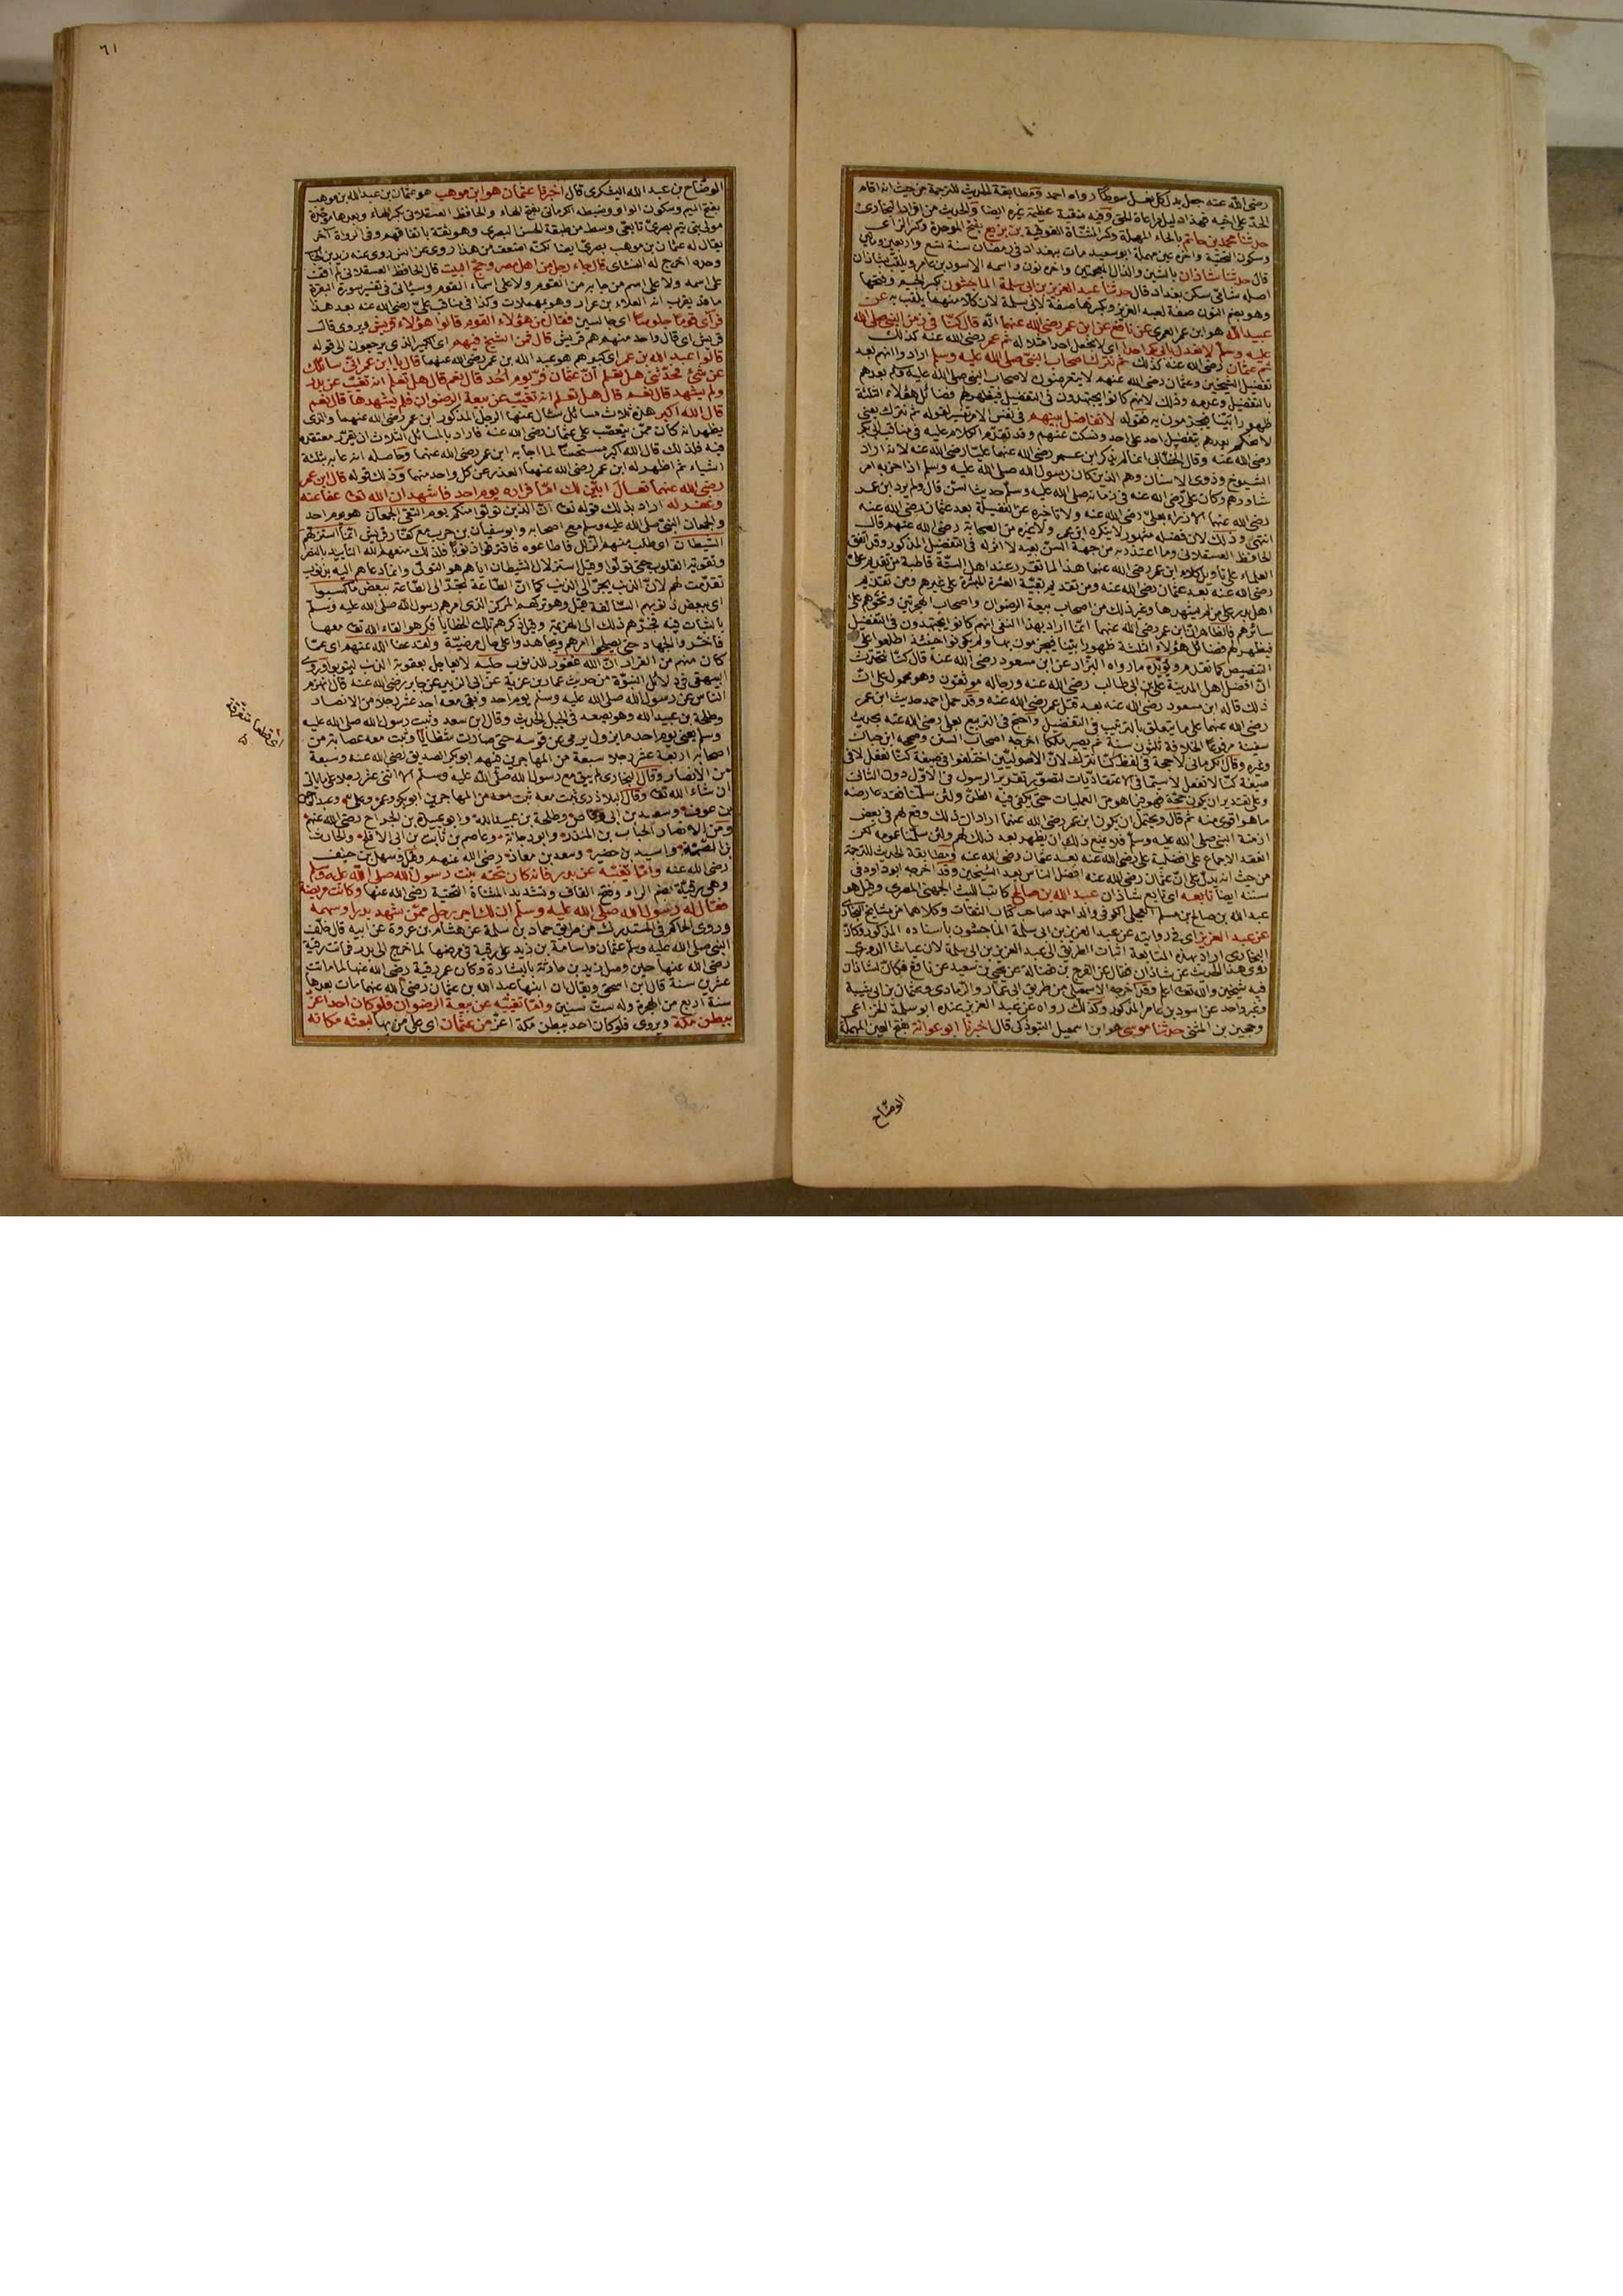 رضى الله عنه جعل بدل كل نعل سوطا رواه احمد ومطابقة الحديث للترجمة من حيث انه اقام
الحد على اخيه فهذا دليل مراعاة الحق وفيه منقبة عظيمة غيره ايضا والحديث من افراد البخارى
حدثنا محمد بن حاتم بالحاء المهملة وكسر المثناة الفوقية بن بزيع بفتح الموحدة وكسر الزاى
وسكون التحتية واخره عين مهملة ابو سعيد مات ببغداد فى رمضان سنة تسع واربعين ومائتين
قال حدثنا شاذان بالشين والذال المعجمتين واخره نون واسمه الاسود بن عامر ويلقب بشاذان
اصله شامى سكن بغداد قال حدثنا عبد العزيز بن ابى سلمة الماجشون بكسر الجيم وفتحها
وهو بضم النون صفة لعبد العزيز وبكسرها صفة لابى سلمة لان كلا منهما يلقب به عن
عبيد الله هو ابن عمر العمرى عن نافع عن ابن عمر رضى الله عنهما انه قال كنا فى زمن النبى صلى الله
عليه وسلم لا نعدل بابى بكر احدا اى لا نجعل احدا مثلا له ثم عمر رضى الله عنه كذلك
ثم عثمان رضى الله عنه كذلك ثم نترك اصحاب النبى صلى الله عليه وسلم ارادوا انهم بعد
تفضيل الشيخين وعثمان رضى الله عنهم لا يتعرضون لاصحاب النبى صلى الله عليه وسلم بعدهم
بالتفضيل وعدمه وذلك لانهم كانوا يجتهدون فى التفضيل فيظهر لهم فضائل هؤلاء الثلثة
ظهورا بينا فيجزمون به فقوله لا نفاضل بينهم فى نفس الامر تفسير لقوله ثم نترك يعنى
لا نحكم بعدهم بتفضيل احد على احد ونسكت عنهم وقد تقدم الكلام عليه فى مناقب ابى بكر
رضى الله عنه وقال الخطابى انما لم يذكر ابن عمر رضى الله عنهما عليا رضى الله عنه لانه اراد
الشيوخ وذوى الاسنان وهم الذين كان رسول الله صلى الله عليه وسلم اذا حزبه امر
شاورهم وكان على رضى الله عنه فى زمانه صلى الله عليه وسلم حديث السن قال ولم يرد ابن عمر
رضى الله عنهما الازراء بعلى رضى الله عنه ولا تاخيره عن الفضيلة بعد عثمان رضى الله عنه
انتهى وذلك لان فضله مشهور لا ينكره ابن عمر ولا غيره من الصحابة رضى الله عنهم قال
الحافظ العسقلانى وما اعتذر به من جهة السن بعيد لا اثر له فى التفضيل المذكور وقد اتفق
العلماء على تاويل كلام ابن عمر رضى الله عنهما هذا لما تقرر عند اهل السنة قاطبة من تقديم على
رضى الله عنه بعد عثمان رضى الله عنه ومن تقديم بقية العشرة المبشرة على غيرهم ومن تقديم
اهل بدر على من لم يشهدها وغير ذلك من اصحاب بيعة الرضوان واصحاب الهجرتين ونحوهم على
سائرهم فالظاهر ان ابن عمر رضى الله عنهما انما اراد بهذا النفى انهم كانوا يجتهدون فى التفضيل
فيظهر لهم فضائل هؤلاء الثلثة ظهورا بينا فيجزمون بها ولم يكونوا حينئذ اطلعوا على
التنصيص كما تقدم ويؤيده ما رواه البزار عن ابن مسعود رضى الله عنه قال كنا نتحدث
ان افضل اهل المدينة على بن ابى طالب رضى الله عنه ورجاله موثقون وهو محمول على ان
ذلك قاله ابن مسعود رضى الله عنه بعد قتل عمر رضى الله عنه وقد حمل احمد حديث ابن عمر
رضى الله عنهما على ما يتعلق بالترتيب فى التفضيل واحتج فى التربيع بعلى رضى الله عنه بحديث
سفينة مرفوعا الخلافة ثلثون سنة ثم يصير ملكا اخرجه اصحاب السنن وصححه ابن حبان
وغيره وقال الكرمانى لا حجة فى لفظ كنا نترك لان الاصوليين اختلفوا فى صيغة كنا نفعل لا فى
صيغة كنا لا نفعل لا سيما فى الاعتقاديات لتصور تقرير الرسول فى الاول دون الثانى
وعلى تقدير ان يكون حجة فهو فيما هو من العمليات حتى يكفى فيه الظن ولئن سلمنا فقد عارضه
ما هو اقوى منه ثم قال ويحتمل ان يكون ابن عمر رضى الله عنهما اراد ان ذلك وقع لهم فى بعض
ازمنة النبى صلى الله عليه وسلم فلا يمنع ذلك ان يظهر بعد ذلك لهم ولئن سلمنا عمومه لكن
انعقد الاجماع على افضلية على رضى الله عنه بعد عثمان رضى الله عنه ومطابقة الحديث للترجمة
من حيث انه يدل على ان عثمان رضى الله عنه افضل الناس بعد الشيخين وقد اخرجه ابو داود فى
سننه ايضا تابعه اى تابع شاذان عبد الله بن صالح كاتب الليث الجهنى المصرى وقيل هو
عبد الله بن صالح بن مسلم العجلى الكوفى والد احمد صاحب كتاب الثقات وكلاهما من مشايخ البخارى
عن عبد العزيز اى فى روايته عن عبد العزيز بن ابى سلمة الماجشون باسناده المذكور وكان
البخارى اراد بهذه المتابعة اثبات الطريق الى عبد العزيز بن ابى سلمة لان عباسا الدورى
روى هذا الحديث عن شاذان فقال عن الفرج بن فضالة عن يحيى بن سعيد عن نافع فكان لشاذان
فيه شيخين والله تعه اعلم وقد اخرجه الاسمعيلى من طريق ابى عمار والرمادى وعثمان بن ابى شيبة
وغير واحد عن اسود بن عامر المذكور وكذلك رواه عن عبد العزيز عنده ابو سلمة الخزاعى
وحجين بن المثنى حدثنا موسى هو ابن اسمعيل التبوذكى قال اخبرنا ابو عوانة بفتح العين المهملة
الوضاح
٦١
الوضاح بن عبد الله اليشكرى قال اخبرنا عثمان هو ابن موهب هو عثمان بن عبد الله بن موهب
بفتح الميم وسكون الواو وضبطه الكرمانى بفتح الهاء والحافظ العسقلانى بكسر الهاء وبعدها موحدة
مولى بنى تيم بصرى تابعى وسط من طبقة الحسن البصرى وهو ثقة باتفاقهم وفى الرواة آخر
يقال له عثمان بن موهب بصرى ايضا لكنه اضعف من هذا روى عن انس روى عنه زيد بن الحباب
وحده اخرج له النسائى قال جاء رجل من اهل مصر وحج البيت قال الحافظ العسقلانى لم اقف
على اسمه ولا على اسم من جابه من القوم ولا على اسماء القوم وسياتى فى تفسير سورة البقرة
ما قد يقرب انه العلاء بن عرار وهو بمهملات وكذا فى مناقب على رضى الله عنه بعد هذا
فرآى قوما جلوسا اى جالسين فقال من هؤلاء القوم قالوا هؤلاء قريش ويروى قال
قريش اى قال واحد منهم هم قريش قال فمن الشيخ فيهم اى الكبير الذى يرجعون الى قوله
قالوا عبد الله بن عمر اى كبيرهم هو عبد الله بن عمر رضى الله عنهما قال يا ابن عمر انى سائلك
عن شئ فحدثنى هل تعلم ان عثمان فر يوم احد قال نعم قال هل تعلم انه تغيب عن بدر
ولم يشهد قال نعم قال هل تعلم انه تغيب عن بيعة الرضوان فلم يشهدها قال نعم
قال الله اكبر هذه ثلاث مسائل سال عنها الرجل المذكور ابن عمر رضى الله عنهما والذى
يظهر انه كان ممن يتعصب على عثمان رضى الله عنه فاراد بالمسائل الثلاث ان يقرر معتقده
فيه فلذلك قال الله اكبر مستحسنا لما اجابه ابن عمر رضى الله عنهما وحاصله انه عابه بثلثة
اشياء ثم اظهر له ابن عمر رضى الله عنهما العذر عن كل واحد منها وذلك قوله قال ابن عمر
رضى الله عنهما تعال ابين لك اما فراره يوم احد فاشهد ان الله تعه عفا عنه
وغفر له اراد بذلك قوله تعه ان الذين تولوا منكم يوم التقى الجمعان هو يوم احد
والجمعان النبى صلى الله عليه وسلم مع اصحابه وابو سفيان بن حرب مع كفار قريش انما استزلهم
الشيطان اى طلب منهم الزلل فاطاعوه فاقترفوا ذنوبا فلذلك منعهم الله التاييد بالنصر
وتقوية القلوب حتى تولوا وقيل استزلال الشيطان اياهم هو التولى وانما دعاهم اليه بذنوب
تقدمت لهم لان الذنب يجر الى الذنب كما ان الطاعة تجر الى الطاعة ببعض ما كسبوا
اى ببعض ذنوبهم السالفة قيل وهو تركهم المركز الذى امرهم رسول الله صلى الله عليه وسلم
بالثبات فيه فجرهم ذلك الى الهزيمة وقيل ذكرهم تلك الخطايا فكرهوا لقاء الله تعه معها
فاخروا الجهاد حتى يصلحوا امرهم ويجاهدوا على حال مرضية ولقد عفا الله عنهم اى عما
كان منهم من الفرار ان الله غفور للذنوب حليم لا يعاجل بعقوبة الذنب ليتوب وروى
البيهقى فى دلائل النبوة من حديث عمارة بن غزية عن ابى الزبير عن جابر رضى الله عنه قال انهزم
الناس عن رسول الله صلى الله عليه وسلم يوم احد وبقى معه احد عشر رجلا من الانصار
وطلحة بن عبيد الله وهو يصعد فى الجبل الحديث وقال ابن سعد وثبت رسول الله صلى الله عليه
وسلم يعنى يوم احد ما يزول يرمى عن قوسه حتى صارت شظايا وثبت معه عصابة من
اصحابه اربعة عشر رجلا سبعة من المهاجرين فيهم ابو بكر الصديق رضى الله عنه وسبعة
من الانصار وقال البخارى لم يبق مع رسول الله صلى الله عليه وسلم الا اثنى عشر رجلا على ما ياتى
ان شاء الله تعه وقال البلاذرى ثبت معه من المهاجرين ابو بكر وعمر وعلى وعبد الرحمن
بن عوف وسعد بن ابى وقاص وطلحة بن عبيد الله وابو عبيدة بن الجراح رضى الله عنهم
ومن الانصار الحباب بن المنذر وابو دجانة وعاصم بن ثابت بن ابى الاقلح والحارث
بن الصمة واسيد بن حضير وسعد بن معاذ رضى الله عنهم وقيل وسهل بن حنيف
رضى الله عنه واما تغيبه عن بدر فانه كان تحته بنت رسول الله صلى الله عليه وسلم
وهى رقية بضم الراء وفتح القاف وتشديد المثناة التحتية رضى الله عنها وكانت مريضة
فقال له رسول الله صلى الله عليه وسلم ان لك اجر رجل ممن شهد بدرا وسهمه
وروى الحاكم فى المستدرك من طريق حماد بن سلمة عن هشام بن عروة عن ابيه قال خلف
النبى صلى الله عليه وسلم عثمان واسامة بن زيد على رقية فى مرضها لما خرج الى بدر فماتت رقية
رضى الله عنها حين وصل زيد بن حارثة بالبشارة وكان عمر رقية رضى الله عنها لما ماتت
عشرين سنة قال ابن اسحق ويقال ان ابنها عبد الله بن عثمان رضى الله عنهما مات بعدها
سنة اربع من الهجرة وله ست سنين واما تغيبه عن بيعة الرضوان فلو كان احد اعز
ببطن مكة ويروى فلو كان احد ببطن مكة اعز من عثمان اى على من بها لبعثه مكانه
اى قطعا متفرقة